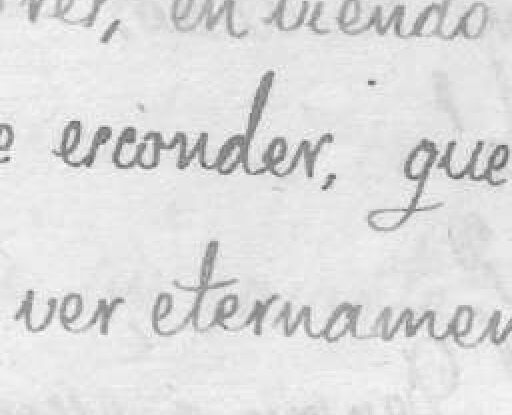 ver, en viendo
e esconder, que
ver eternamen